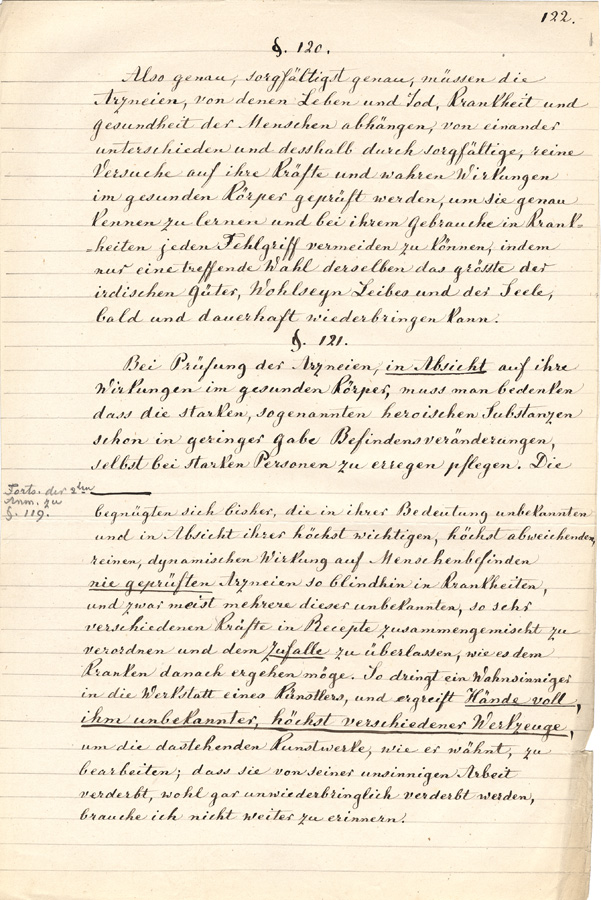 122.
§. 120.
Also genau, sorgfältigst genau, müssen die
Arzneien, von denen Leben und Tod, Krankheit und
gesundheit der Menschen abhängen, von einander
unterschieden und desshalb durch sorgfältige, reine
Versuche auf ihre Kräfte und wahren Wirkungen
im gesunden Körper geprüft werden, um sie genau
kennen zu lernen und bei ihrem Gebrauche in Krank=
=heiten jeden Fehlgriff vermeiden zu können, indem
nur eine treffende Wahl derselben das grösste der
irdischen Güter, Wohlseyn Leibes und der Seele,
bald und dauerhaft wiederbringen kann.
§. 121.
Bei Prüfung der Arzneien, in Absicht auf ihre
Wirkungen im gesunden Körper, muss man bedenken
dass die starken, sogenannten heroischen Substanzen
schon in geringer Gabe Befindensveränderungen,
selbst bei starken Personen zu erregen pflegen. Die
Forts. der 2ten
Anm. zu
§. 119.
begnügten sich bisher, die in ihrer Bedeutung unbekannten
und in Absicht ihrer höchst wichtigen, höchst abweichenden,
reinen, dynamischen Wirkung auf Menschenbefinden
nie geprüften Arzneien so blindhin in Krankheiten,
und zwar meist mehrere dieser unbekannten, so sehr
verschiedenen Kräfte in Recepte zusammengemischt zu
verordnen und dem Zufalle zu überlassen, wie es dem
Kranken danach ergehen möge. So dringt ein Wahnsinniger
in die Werkstatt eines Künstlers, und ergreift Hände voll,
ihm unbekannter, höchst verschiedener Werkzeuge,
um die dastehenden Kunstwerke, wie er wähnt, zu
bearbeiten; dass sie von seiner unsinnigen Arbeit
verderbt, wohl gar unwiederbringlich verderbt werden,
brauche ich nicht weiter zu erinnern.